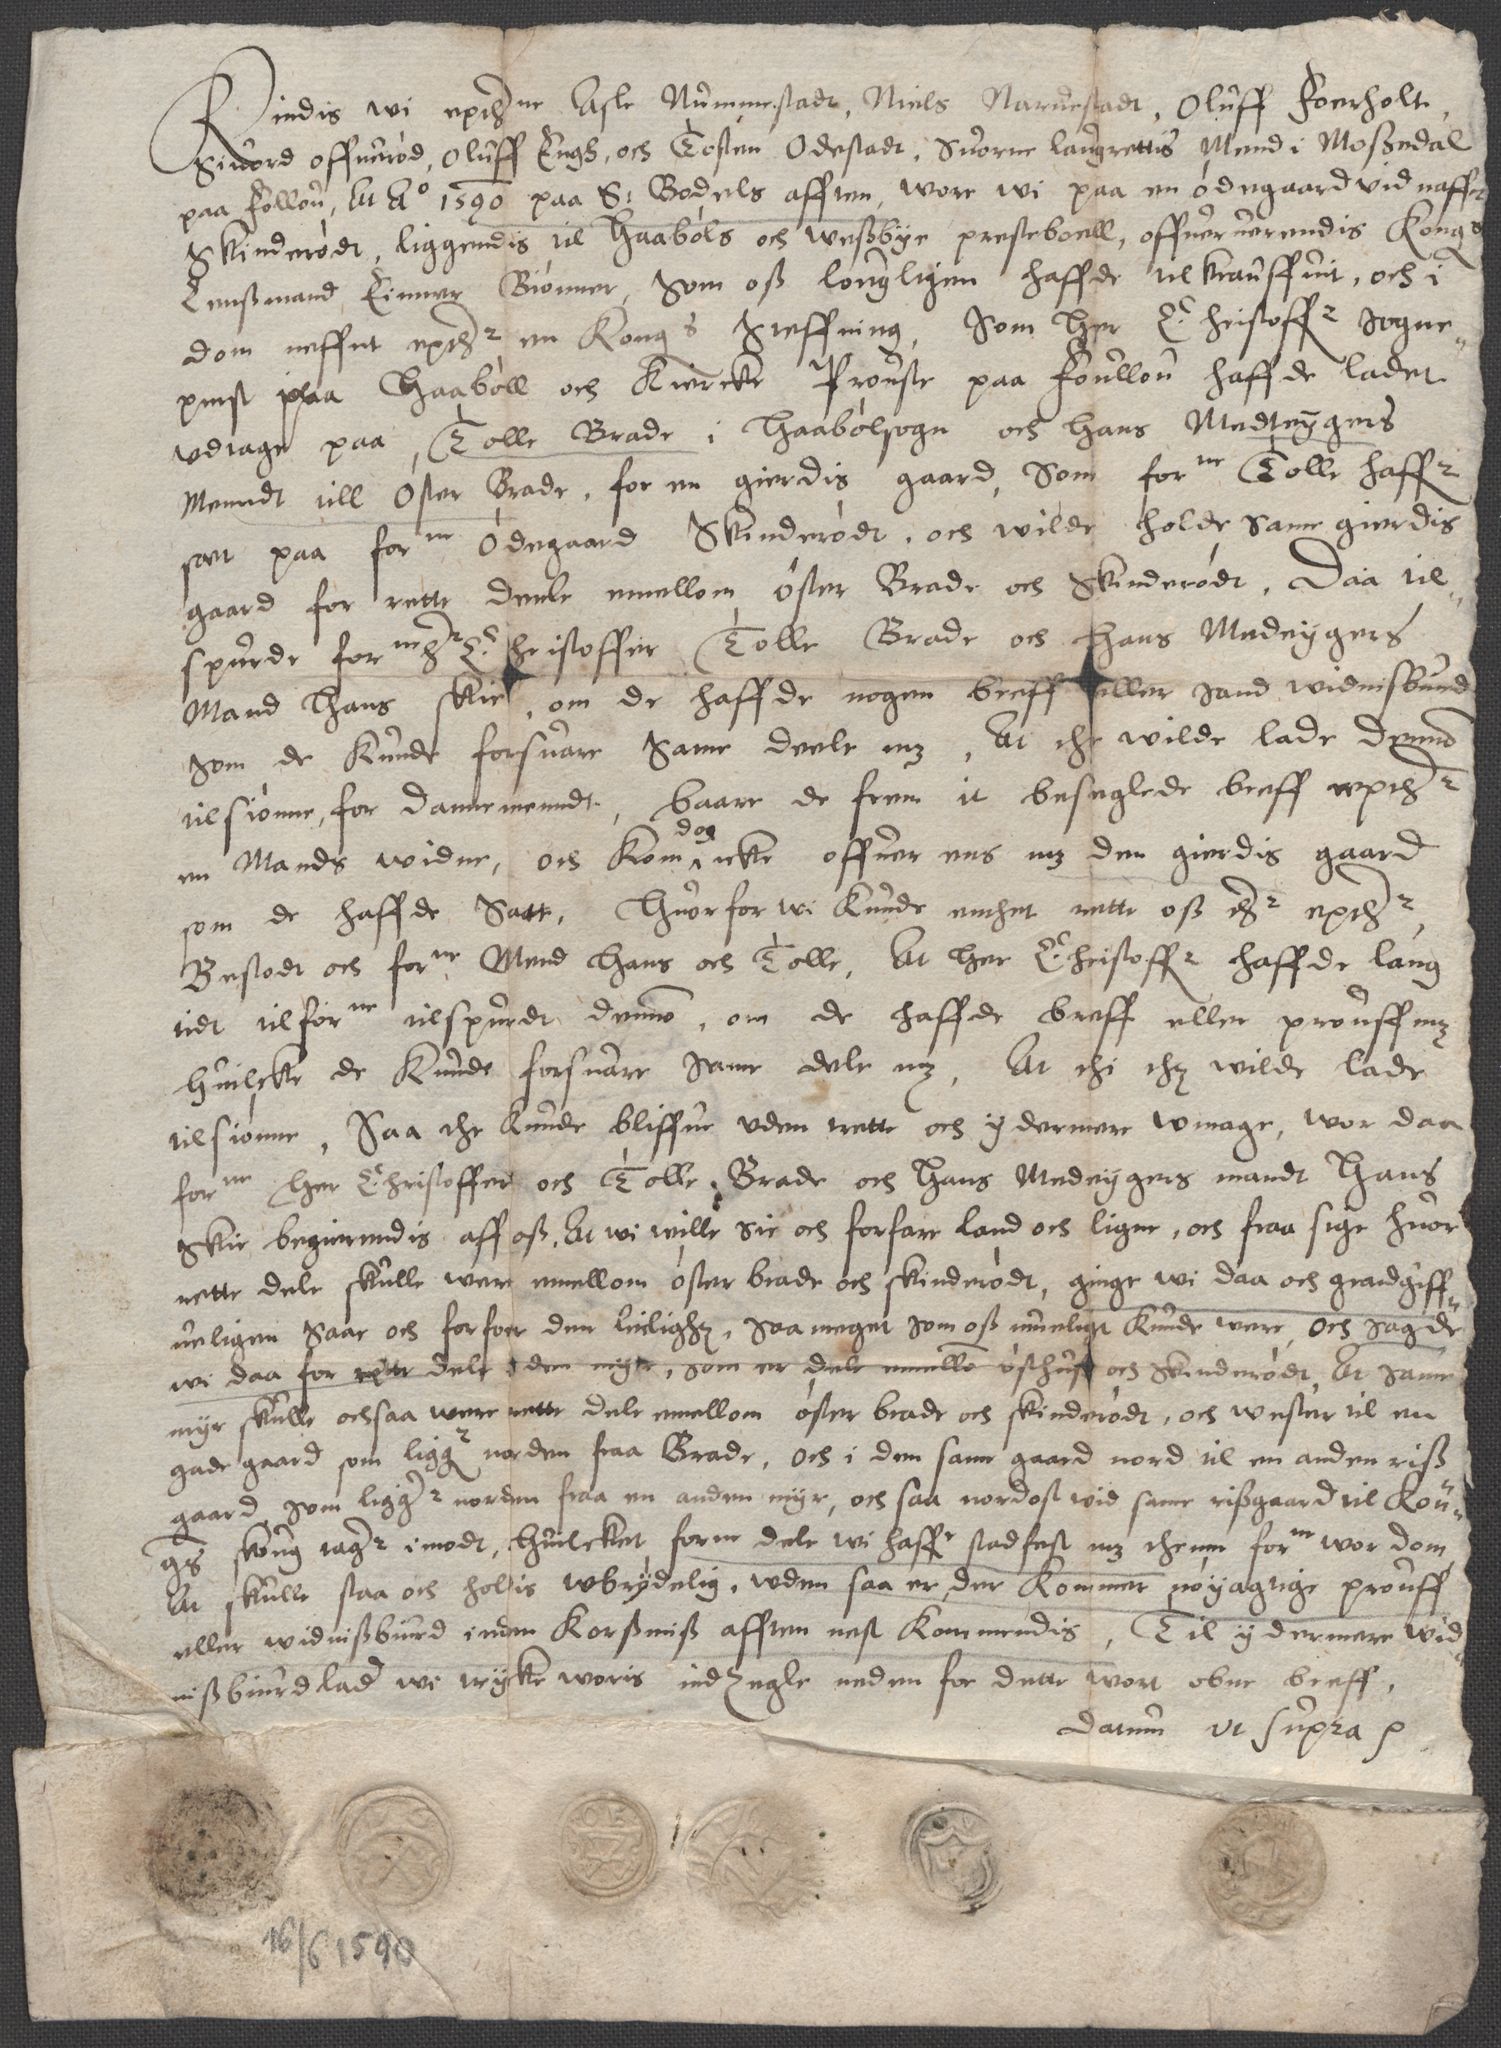 Kiendis wi epthrne Asle Nummestadt, Niels Narnestadt, Oluff Foerholt,
Siuord offuerød, Oluff Eugh, och Tosten Odestadt, Suorne laugrettis Mend i Moßedal
paa Follou, At A° 1590 paa S: Bodels afften, wore wi paa en ødegaard vid naffn
Skinderødt, liggendis til Haabøls och weßbye presteboell, offueruerendis Kongs
Lenßmand Einner Biønner, Som oß lougligen haffde tilkrauffuit, och i
dom neffnt epther en Kongs Steffning, Som Her Christoffer Sogne„
prest paa Haabøll och Kiercke Prouste paa Foullou haffde ladet
vdtage paa Tolle Brade i Haabølsogn och hans Medeygers
Menndt till Øster Brade, for en gierdis gaard, Som forne Tolle haffr
sett paa forne Ødegaard Skinderødt, och wilde holde Same gierdis
gaard for rette deele emellom øster Brade och Skinderødt, Daa til„
spurde forne hr Christoffer Tolle Brade och hans Medeygers
Mand Hans Skie, om de haffde nogen breff eller sand widnisburd
Som de Kunde forsuare Same deele mz, At the wilde lade dennom
tilsiønne, for dannemendt, baare de frem it beseglede breff epther
en Mands widne, och Kom dog icke offuer ens mz den gierdis gaard
som de haffde Satt, Huorfor wi Kunde inthet rette oß ther epther,
Bestodt och forne Mend Hans och Tolle, At Her Christoffr haffde lang
tidt tilforne tilspurdt dennom, om de haffde breff eller prouff mz
huilcke de Kunde forsuare same dele mz, At thi thz wilde lade
tilsiønne, Saa the Kunde bliffue uden trette och ydermere wmage, wor daa
forne Her Christoffer och Tolle Brade och Hans Medeygers mandt Hans
Skie begierendis aff oß, At wi wille Sie och forfare land och ligne, och fraa sige huor
rette dele skulle were emellom øster brade och skinderødt, ginge wi daa och grandgiff„
ueligen Saae och forfoer den leilighz, Saa meget som oß mueligt Kunde were, och sagde
wi daa for rette dele den myr, som er dele emellom østhus och Skinderødt, At same
myr skulle ochsaa were rette dele emellom øster brade och skinderødt, och wester til en
gade gaard som ligger norden fraa Brade, och i den same gaard nord til en anden riß
gaard, som ligger norden fraa en anden myr, och saa nordost wid same rißgaard til Kou„
gs skoug tager imodt, huilcket forne dele wi haffr stadfest mz thenne forne wor dom
At skulle staa och holdis wbrødelig, uden saa er der Kommer nøyagtige prouff
eller widnißburd inden Korßmiß afften nest Kommendis, Til ydermere wid„
nißbiurd lader wi trycke woris indZegle neden for dette wort obne breff,
Datum ut supra
16/6 1590